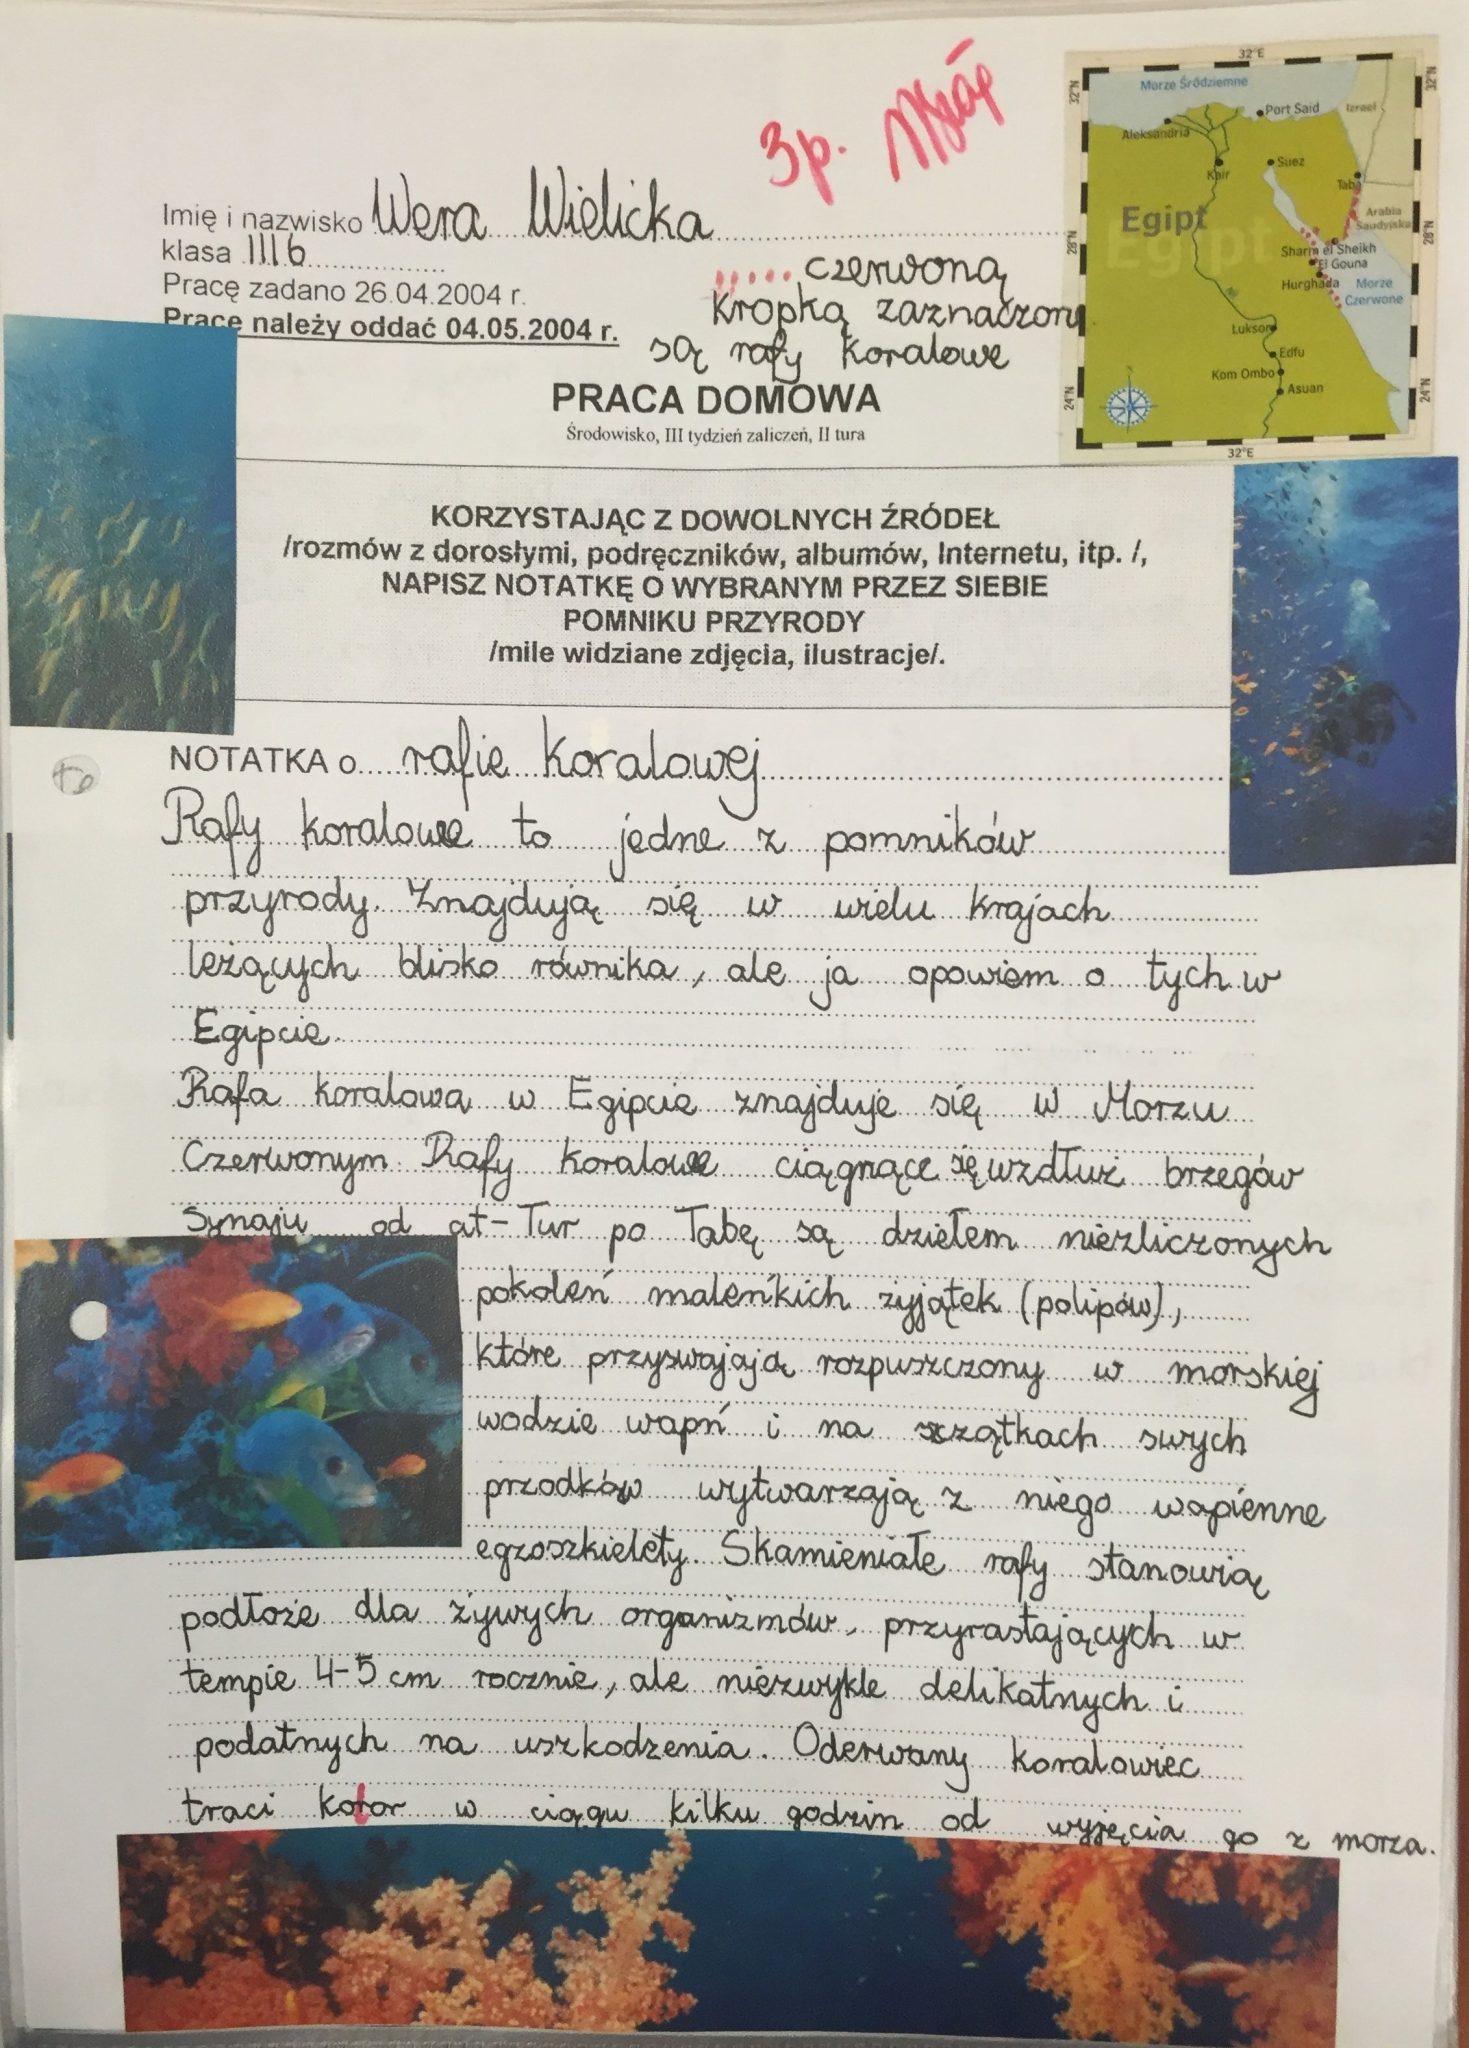 3p.
Imię i nazwisko Wera Wielicka
klasa III b
Pracę zadano 26.04.2004 r.
Pracę należy oddać 04.05.2004 r.
..... czerwoną
kropką zaznaczone
są rafy koralowe
32°E
32°N
32°N
Morze Śródziemne
Port Said
Izrael
Aleksandria
Kair
Suez
Taba
Egipt
Egipt
Arabia
Saudyjska
28°N
28°N
Sharm el Sheikh
El Gouna
Hurghada
Morze
Czerwone
Luksor
Edfu
Kom Ombo
Asuan
24°N
24°N
32°E
PRACA DOMOWA
Środowisko, III tydzień zaliczeń, II tura
KORZYSTAJĄC Z DOWOLNYCH ŹRÓDEŁ
/rozmów z dorosłymi, podręczników, albumów, Internetu, itp. /,
NAPISZ NOTATKĘ O WYBRANYM PRZEZ SIEBIE
POMNIKU PRZYRODY
/mile widziane zdjęcia, ilustracje/.
NOTATKA o rafie koralowej
Rafy koralowe to jedne z pomników
przyrody. Znajdują się w wielu krajach
leżących blisko równika, ale ja opowiem o tych w
Egipcie.
Rafa koralowa w Egipcie znajduje się w Morzu
Czerwonym. Rafy koralowe ciągnące się wzdłuż brzegów
Synaju od at-Tur po Tabę są dziełem niezliczonych
pokoleń maleńkich żyjątek (polipów),
które przyswajają rozpuszczony w morskiej
wodzie wapń i na szczątkach swych
przodków wytwarzają z niego wapienne
egzoszkielety. Skamieniałe rafy stanowią
podłoże dla żywych organizmów, przyrastających w
tempie 4-5 cm rocznie, ale niezwykle delikatnych i
podatnych na uszkodzenia. Oderwany koralowiec
traci kolor w ciągu kilku godzin od wyjęcia go z morza.